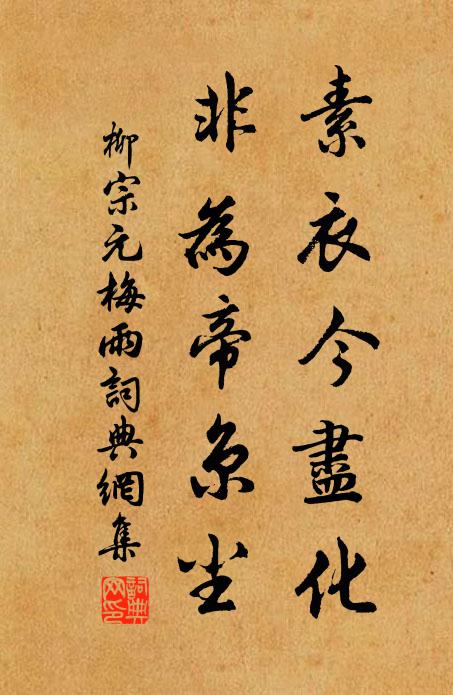 素衣今盡化
非為帝京尘
柳宗元梅雨詞典網集
詞典
网印